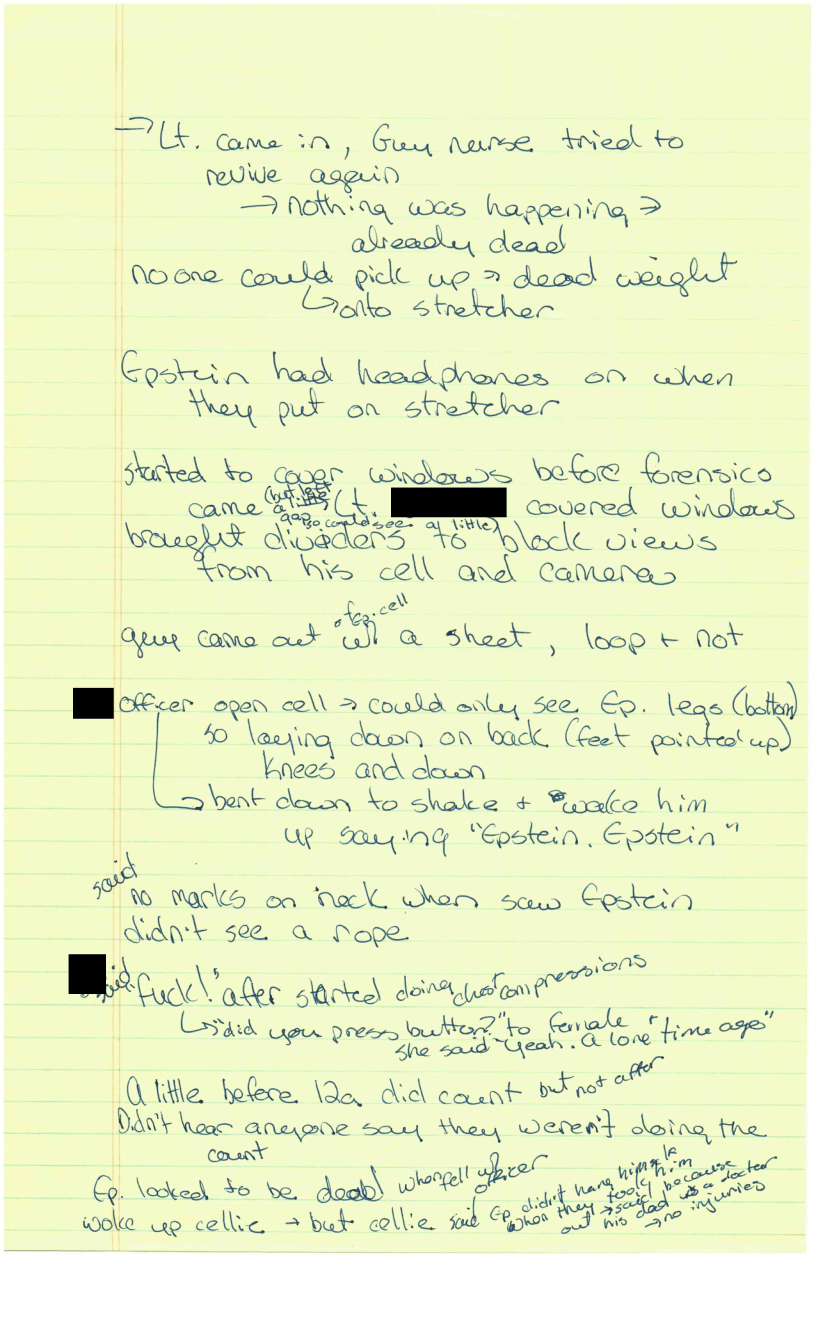 → Lt. came in, Guy nurse tried to
revive again
→ nothing was happening →
already dead
no one could pick up → dead weight
↳ onto stretcher
Epstein had headphones on when
they put on stretcher
started to cover windows before forensics
came (but left a little gap so could see a little) Lt. covered windows
brought dividers to block views
from his cell and camera
of ep. cell
guy came out w/ a sheet, loop + not
officer open cell → could only see Ep. legs (bottom)
so laying down on back (feet pointed up)
knees and down
↳ bent down to shake + wake him
up saying "Epstein. Epstein"
said
no marks on neck when saw Epstein
didn't see a rope
said "fuck!" after started doing chest compressions
↳ "did you press button?" to female
she said "yeah. A long time ago"
A little before 12a did count but not after
Didn't hear anyone say they weren't doing the
count
Ep. looked to be dead when fell officer
woke up cellie → but cellie said Ep. didn't hang himself
when they took him out → said because
his dad is a doctor
→ no injuries